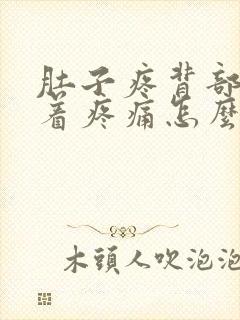 肚子疼背部
着疼痛怎麼
木頭人吹泡泡